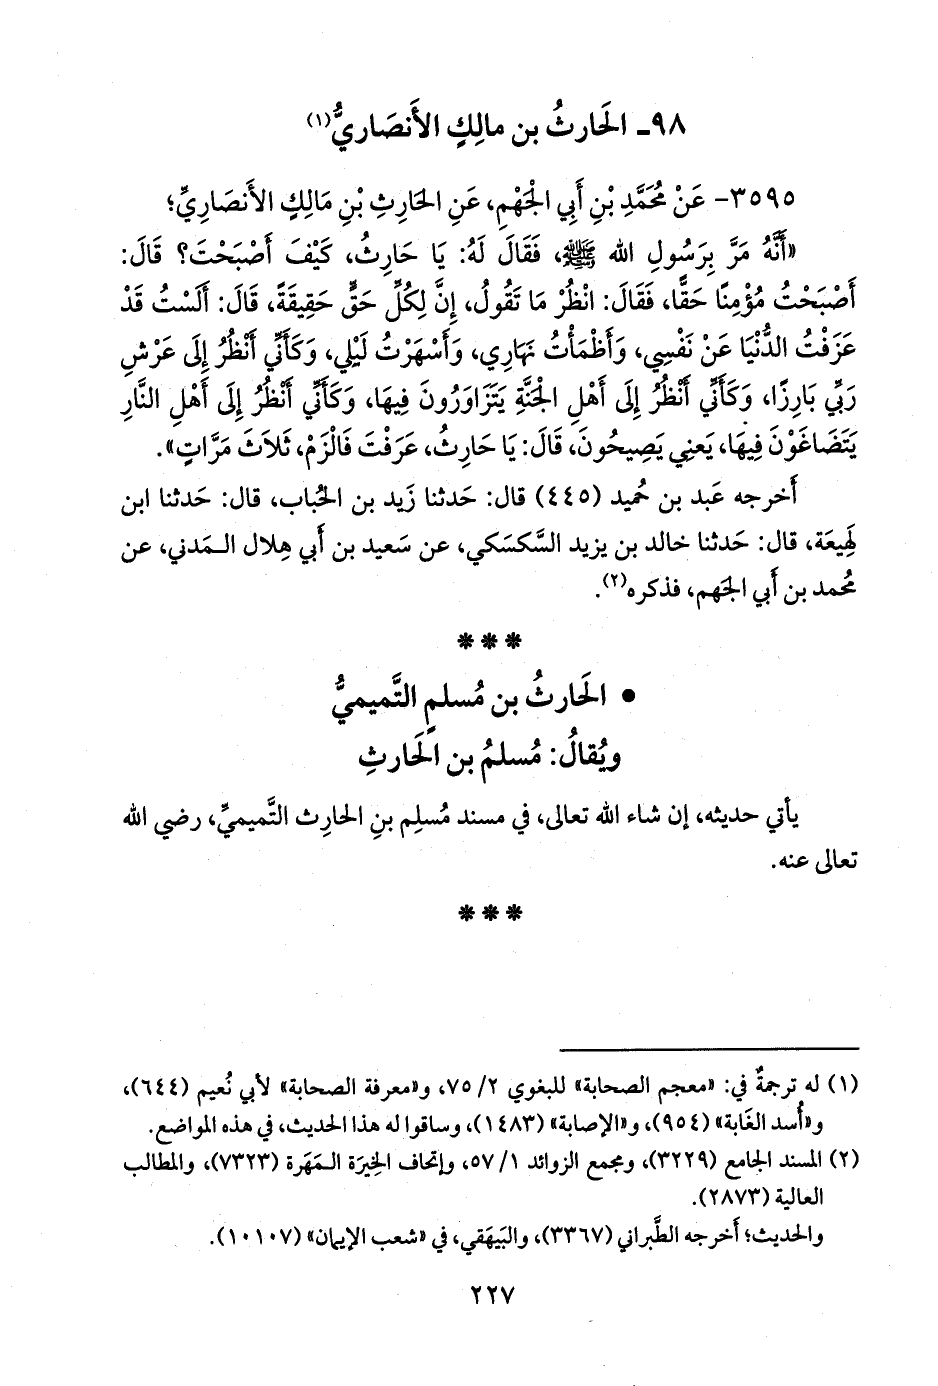 ٩٨- الحَارثُ بن مالِكٍ الأَنصَاريُّ(١)
٣٥٩٥- عَنْ مُحَمَّدِ بْنِ أَبِي الْجَهْمِ، عَنِ الحَارِثِ بْنِ مَالِكٍ الأَنصَارِيِّ؛
«أَنَّهُ مَرَّ بِرَسُولِ الله ﷺ، فَقَالَ لَهُ: يَا حَارِثُ، كَيْفَ أَصْبَحْتَ؟ قَالَ:
أَصْبَحْتُ مُؤْمِنًا حَقًّا، فَقَالَ: انْظُرْ مَا تَقُولُ، إِنَّ لِكُلِّ حَقٍّ حَقِيقَةً، قَالَ: أَلَسْتُ قَدْ
عَزَفْتُ الدُّنْيَا عَنْ نَفْسِي، وَأَظْمَأْتُ نَهَارِي، وَأَسْهَرْتُ لَيْلِي، وَكَأَنِّي أَنْظُرُ إِلَى عَرْشِ
رَبِّي بَارِزًا، وَكَأَنِّي أَنْظُرُ إِلَى أَهْلِ الجَنَّةِ يَتَزَاوَرُونَ فِيهَا، وَكَأَنِّي أَنْظُرُ إِلَى أَهْلِ النَّارِ
يَتَضَاغَوْنَ فِيهَا، يَعنِي يَصِيحُونَ، قَالَ: يَا حَارِثُ، عَرَفْتَ فَالْزَمْ، ثَلَاثَ مَرَّاتٍ».
أَخرجه عَبد بن حُميد (٤٤٥) قال: حَدثنا زَيد بن الحُباب، قال: حَدثنا ابن
لَهِيعَة، قال: حَدثنا خالد بن يزيد السَّكسَكي، عن سَعيد بن أَبي هِلال الـمَدني، عن
مُحمد بن أَبي الجَهم، فذكره(٢).
* * *
• الحَارثُ بن مُسلمٍ التَّميميُّ
ويُقالُ: مُسلمُ بن الحَارثِ
يأتي حديثه، إن شاء الله تعالى، في مسند مُسلِم بنِ الحارِث التَّميميِّ، رضي الله
تعالى عنه.
* * *
(١) له ترجمةٌ في: «معجم الصحابة» للبغوي ٢/ ٧٥، و«معرفة الصحابة» لأبي نُعيم (٦٤٤)،
و«أُسد الغَابة» (٩٥٤)، و«الإصابة» (١٤٨٣)، وساقوا له هذا الحديث، في هذه المواضع.
(٢) المسند الجامع (٣٢٢٩)، ومجمع الزوائد ١/ ٥٧، وإتحاف الخِيرَة الـمَهَرة (٧٣٢٣)، والمطالب
العالية (٢٨٧٣).
والحديث؛ أَخرجه الطَّبراني (٣٣٦٧)، والبَيهَقي، في «شعب الإيمان» (١٠١٠٧).
٢٢٧